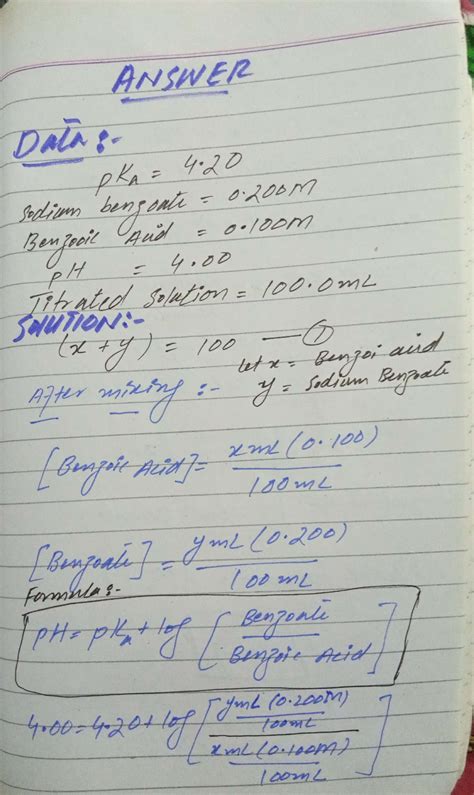 ANSWER
Data :-
pKa = 4.20
Sodium benzoate = 0.200M
Benzoic Acid = 0.100M
pH = 4.00
Titrated Solution = 100.0mL
SOLUTION:-
(x + y) = 100 — ①
let x = Benzoi acid
y = Sodium Benzoate
After mixing :-
[Benzoic Acid] = x mL (0.100) / 100 mL
[Benzoate] = y mL (0.200) / 100 mL
Formula:-
pH = pKa + log [Benzoate / Benzoic Acid]
4.00 = 4.20 + log [y mL (0.200M) / 100mL / x mL (0.100M) / 100mL]